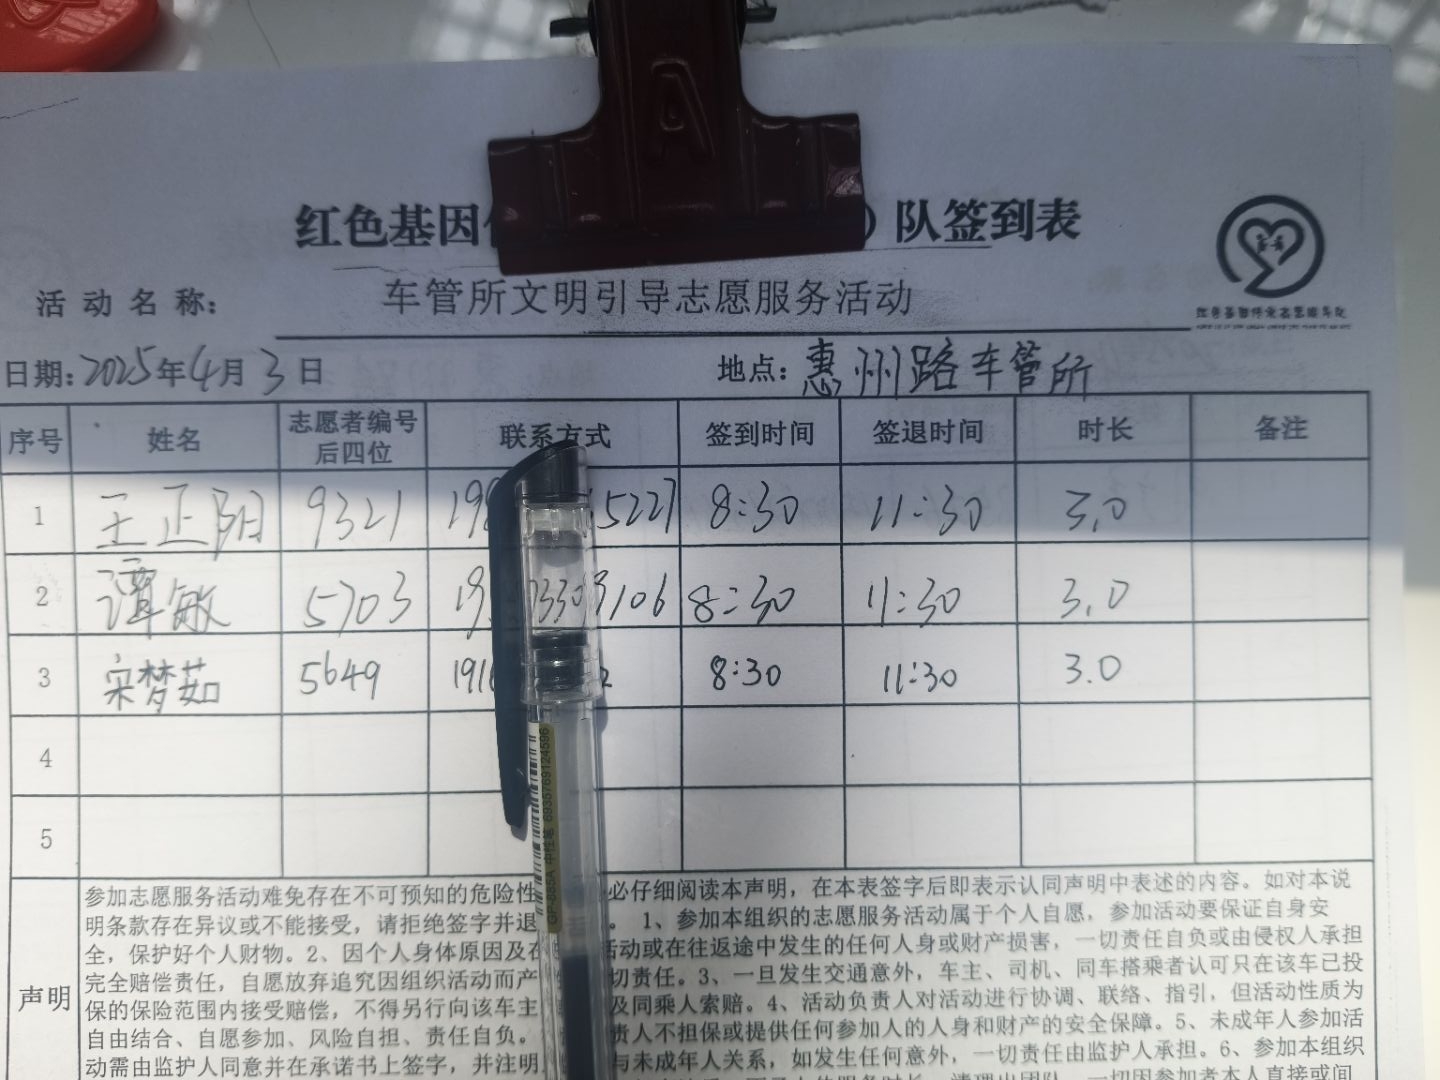 红色基因 ）队签到表
活动名称： 车管所文明引导志愿服务活动
日期：2025年4月3日 地点：惠州路车管所
序号 姓名 志愿者编号后四位 联系方式 签到时间 签退时间 时长 备注
1 王正阳 9321 19 5227 8:30 11:30 3.0
2 谭敏 5703 19 7330 9106 8:30 11:30 3.0
3 宋梦茹 5649 191 8:30 11:30 3.0
4
5
声明
参加志愿服务活动难免存在不可预知的危险性 必仔细阅读本声明，在本表签字后即表示认同声明中表述的内容。如对本说
明条款存在异议或不能接受，请拒绝签字并退 。 1、参加本组织的志愿服务活动属于个人自愿，参加活动要保证自身安
全，保护好个人财物。2、因个人身体原因及在 活动或在往返途中发生的任何人身或财产损害，一切责任自负或由侵权人承担
完全赔偿责任，自愿放弃追究因组织活动而产 切责任。3、一旦发生交通意外，车主、司机、同车搭乘者认可只在该车已投
保的保险范围内接受赔偿，不得另行向该车主 及同乘人索赔。4、活动负责人对活动进行协调、联络、指引，但活动性质为
自由结合、自愿参加、风险自担、责任自负。 责人不担保或提供任何参加人的人身和财产的安全保障。5、未成年人参加活
动需由监护人同意并在承诺书上签字，并注明 与未成年人关系，如发生任何意外，一切责任由监护人承担。6、参加本组织
GP-885A 中性笔 6935769124596